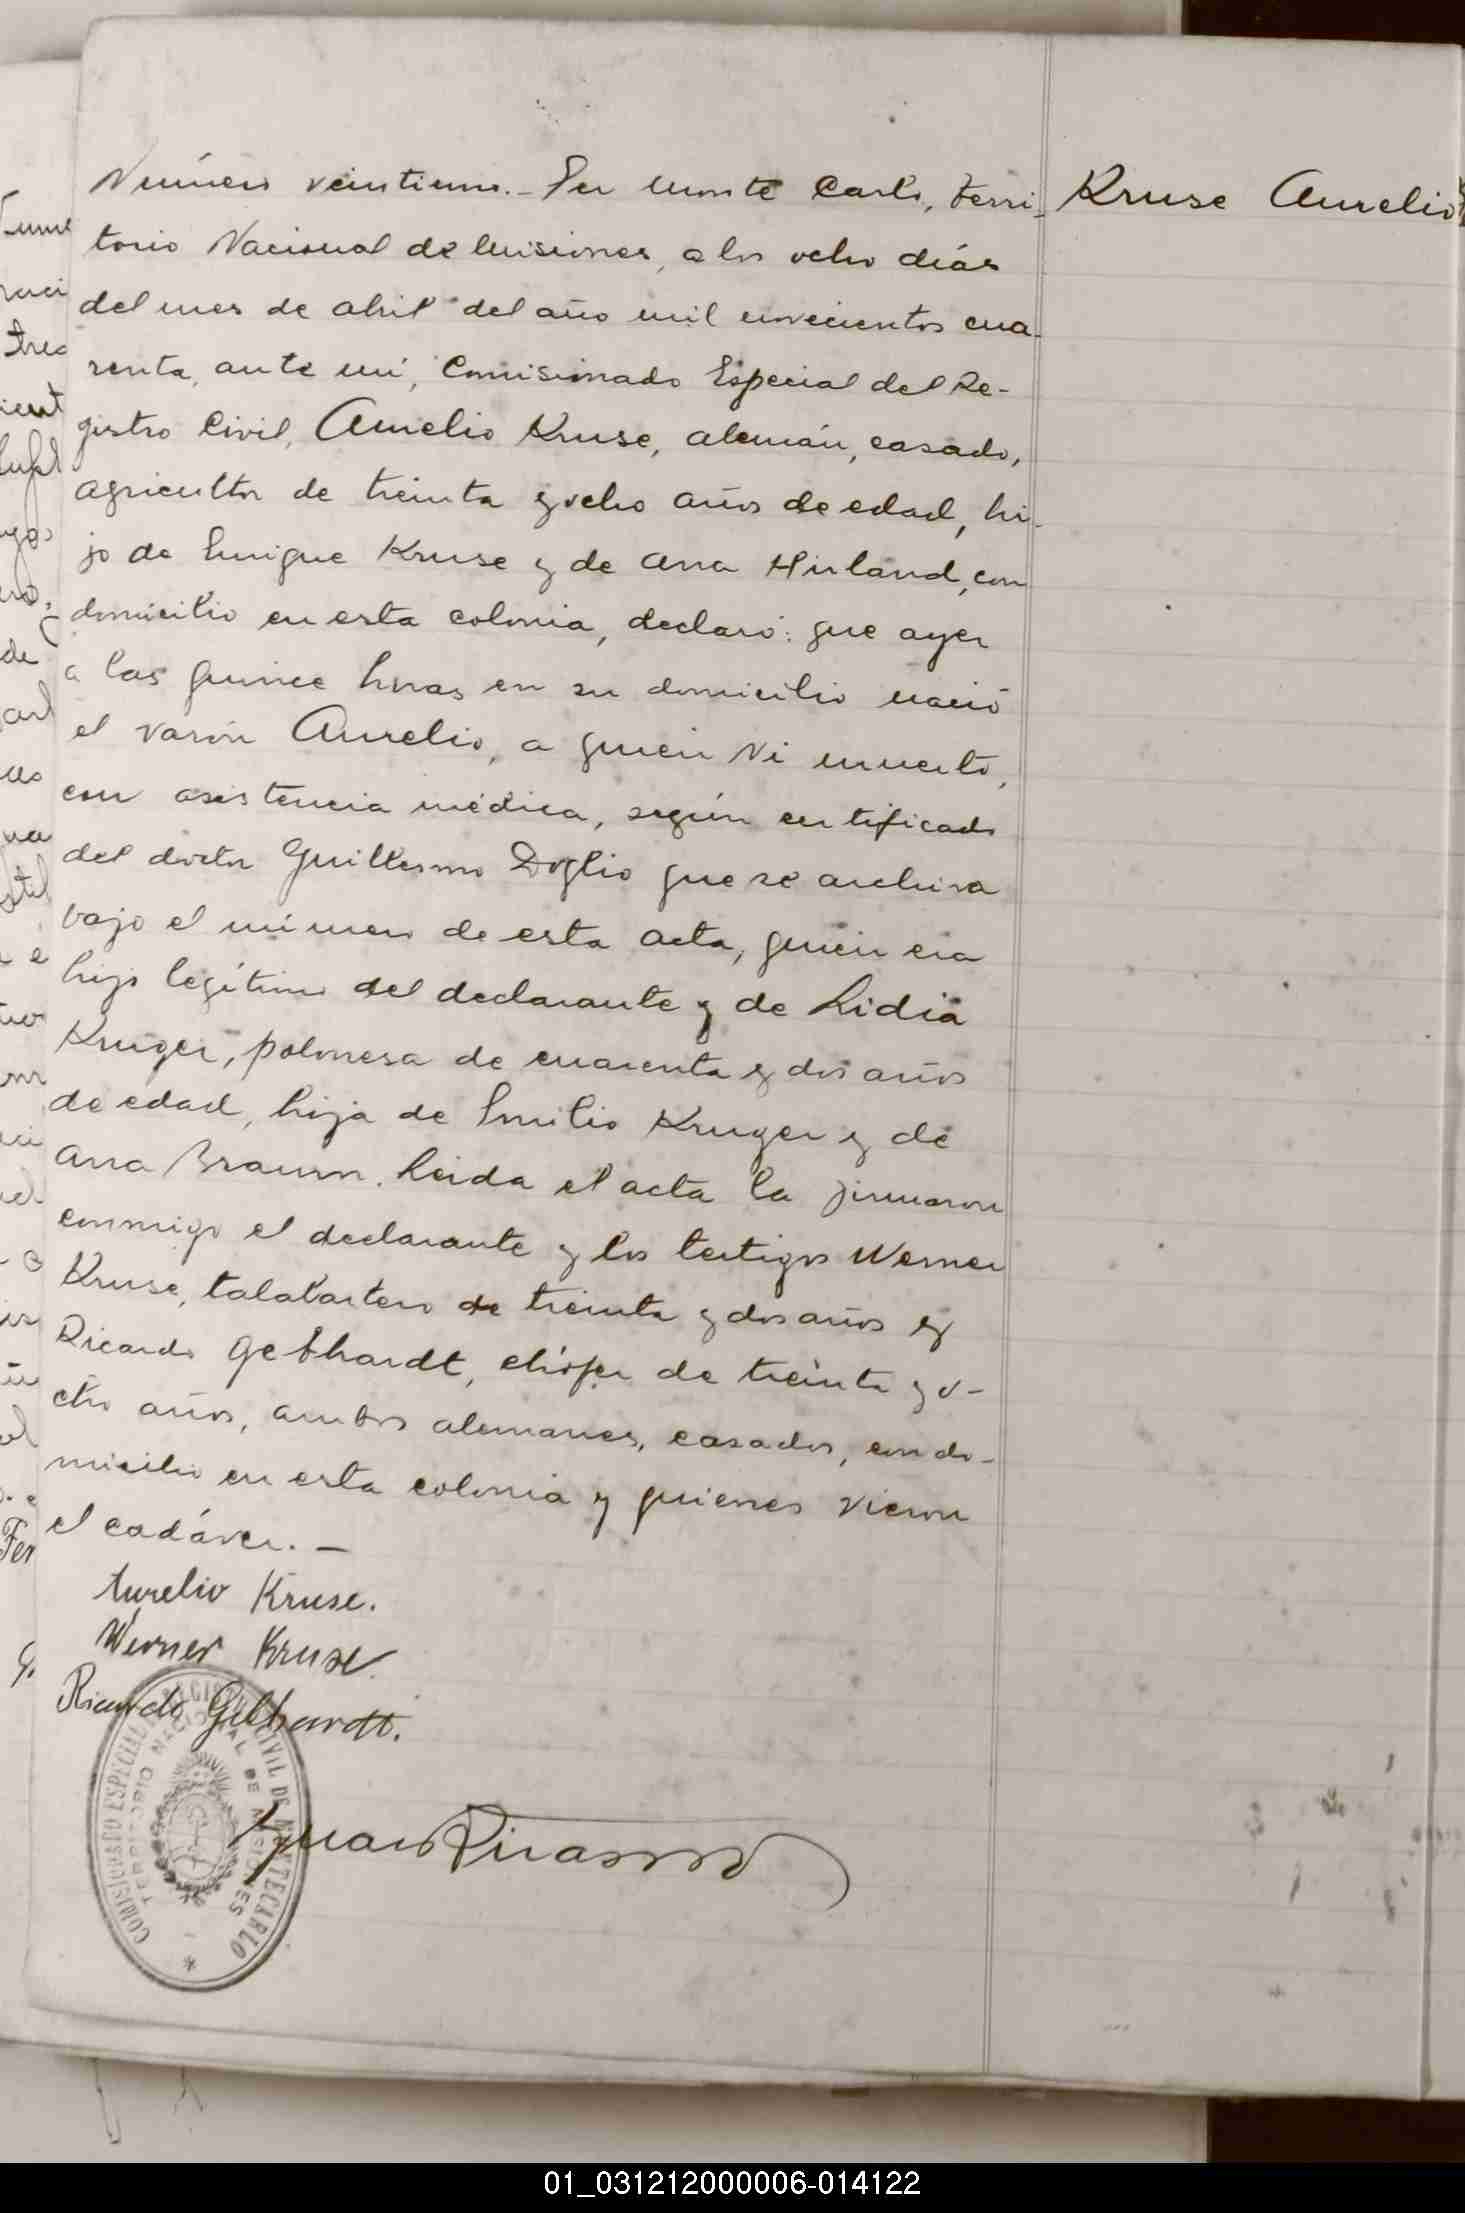 Número veintiuno.- En Monte Carlo, Terri-
Kruse Aurelio
torio Nacional de Misiones, a los ocho días
del mes de abril del año mil novecientos cua-
renta, ante mí, Comisionado Especial del Re-
gistro Civil, Aurelio Kruse, alemán, casado,
agricultor de treinta y ocho años de edad, hi-
jo de Enrique Kruse y de Ana Hirland, con
domicilio en esta colonia, declaró: que ayer
a las quince horas en su domicilio nació
el varón Aurelio, a quien vi muerto,
con asistencia médica, según certificado
del doctor Guillermo Doglio que se archiva
bajo el número de esta acta, quien era
hijo legítimo del declarante y de Lidia
Kruger, polonesa de cuarenta y dos años
de edad, hija de Emilio Kruger y de
Ana Braunn. Leida el acta la firmaron
conmigo el declarante y los testigos Werner
Kruse, talabartero de treinta y dos años y
Ricardo Gebhardt, chófer de treinta y o-
cho años, ambos alemanes, casados, con do-
micilio en esta colonia y quienes vieron
el cadáver.-
Aurelio Kruse.
Werner Kruse
Ricardo Gebhardt.
COMISIONADO ESPECIAL DEL REGISTRO CIVIL DE MONTECARLO
TERRITORIO NACIONAL DE MISIONES
01_031212000006-014122